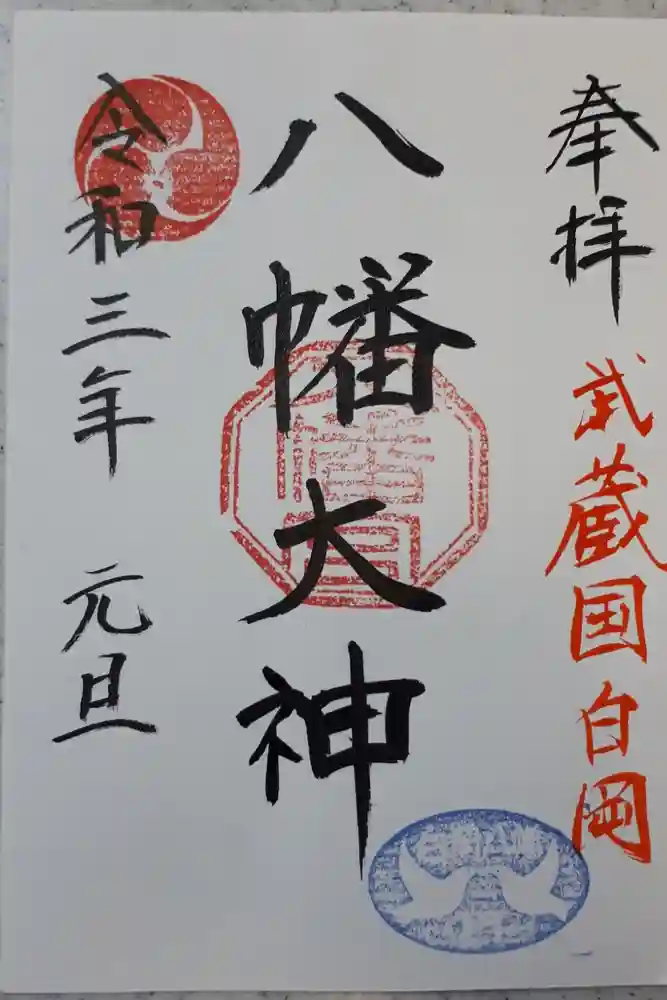 奉拝
武蔵国白岡
八幡大神
令和三年 元旦